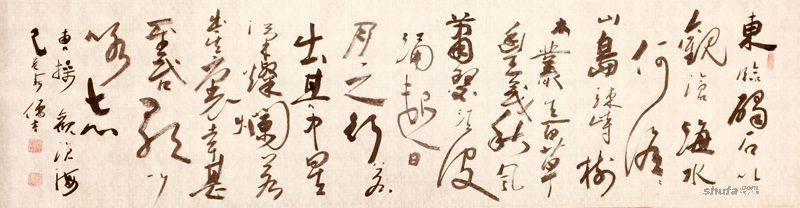 東臨碣石以
觀滄海水
何澹澹
山島竦峙樹
木叢生百草
豐茂秋風
蕭瑟洪波
涌起日
月之行若
出其中星
漢燦爛若
出其裏幸甚
至哉歌以
咏志
曹操 觀滄海
shufa.com